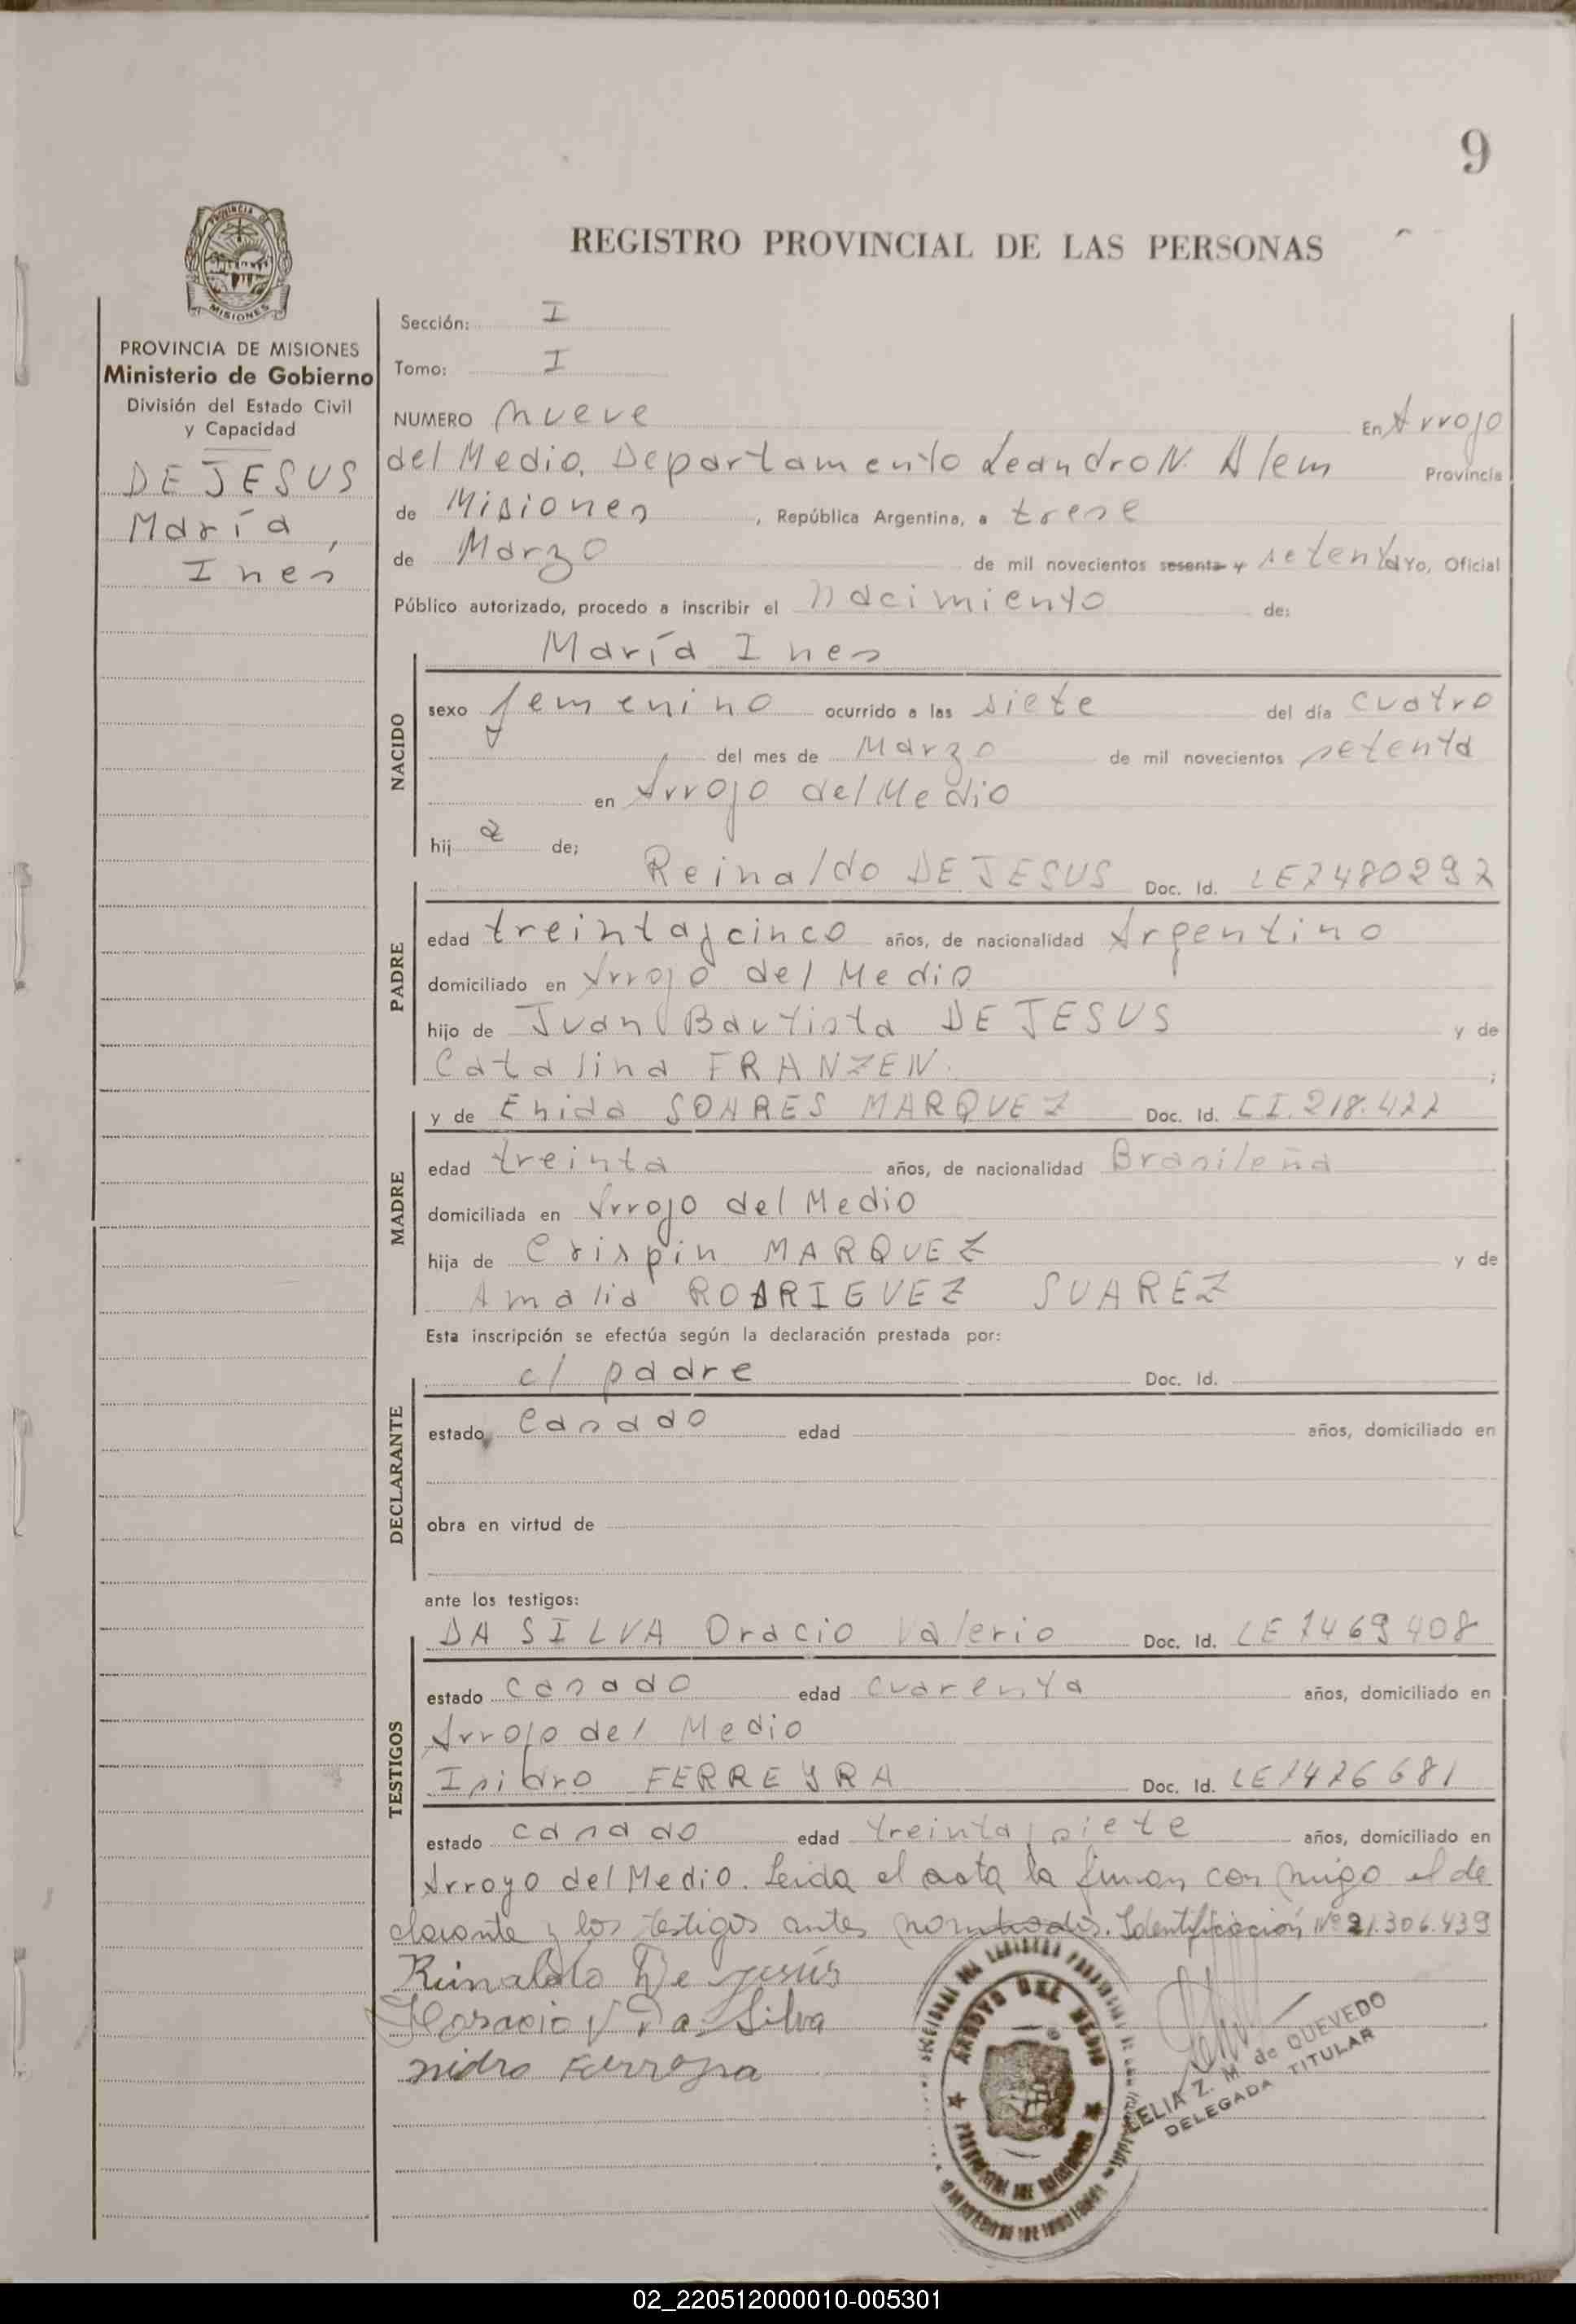 9
REGISTRO PROVINCIAL DE LAS PERSONAS
PROVINCIA DE
MISIONES
PROVINCIA DE MISIONES
Ministerio de Gobierno
División del Estado Civil
y Capacidad
DE JESUS
María,
Ines
Sección: I
Tomo: I
NUMERO nueve En Arroyo
del Medio, Departamento Leandro N. Alem Provincia
de Misiones, República Argentina, a trese
de Marzo de mil novecientos sesenta y setenta Yo, Oficial
Público autorizado, procedo a inscribir el nacimiento de:
María Ines
NACIDO
sexo femenino ocurrido a las siete del día cuatro
del mes de Marzo de mil novecientos setenta
en Arroyo del Medio
hija de;
Reinaldo DE JESUS Doc. Id. LE7480292
PADRE
edad treinta y cinco años, de nacionalidad Argentino
domiciliado en Arroyo del Medio
hijo de Juan Bautista DE JESUS y de
Catalina FRANZEN. ;
y de Enida SOARES MARQUEZ Doc. Id. C.I. 218.422
MADRE
edad treinta años, de nacionalidad Brasileña
domiciliada en Arroyo del Medio
hija de Crispin MARQUEZ y de
Amalia RODRIGUEZ SUAREZ
Esta inscripción se efectúa según la declaración prestada por:
c/ padre Doc. Id.
DECLARANTE
estado Casado edad años, domiciliado en
obra en virtud de
ante los testigos:
DA SILVA Oracio Valerio Doc. Id. LE 7469408
TESTIGOS
estado casado edad cuarenta años, domiciliado en
Arroyo del Medio
Isidro FERREYRA Doc. Id. LE7476681
estado casado edad treinta y siete años, domiciliado en
Arroyo del Medio. Leida el acta la firman con migo el de
clarante y los testigos antes nombrados. Identificación Nº 21.306.439
Reinaldo De Jesús
Horacio V Da Silva
Isidro Ferreyra
ARROYO DEL MEDIO
PROVINCIA DE MISIONES
CELIA Z. M. de QUEVEDO
DELEGADA TITULAR
02_220512000010-005301